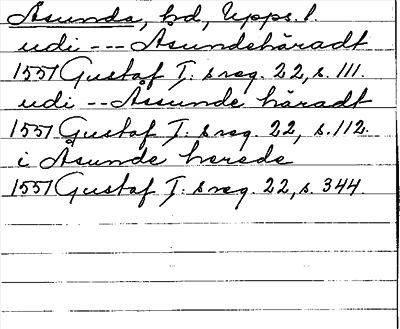 Åsunda, hd, Upps. l.
udi --- Åsundehäradt
1551 Gustaf I: s reg. 22, s. 111.
udi -- Åssunde häradt
1551 Gustaf I: s reg. 22, s. 112.
i Åsunde herede
1551 Gustaf I: s reg. 22, s. 344.